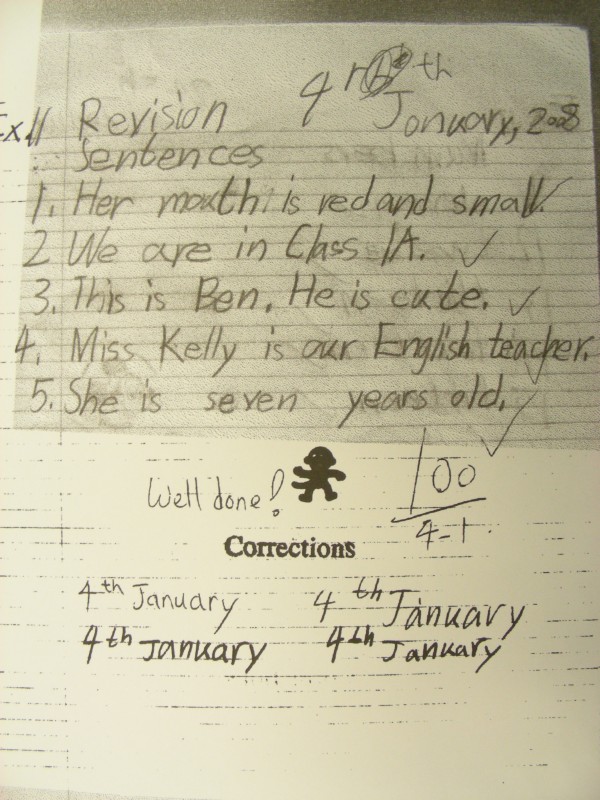 Ex.11 Revision 4 th January, 2008
Sentences
1. Her mouth is red and small.
2 We are in Class 1A.
3. This is Ben. He is cute.
4. Miss Kelly is our English teacher.
5. She is seven years old.
Well done! 100
4-1
Corrections
4th January 4th January
4th January 4th January